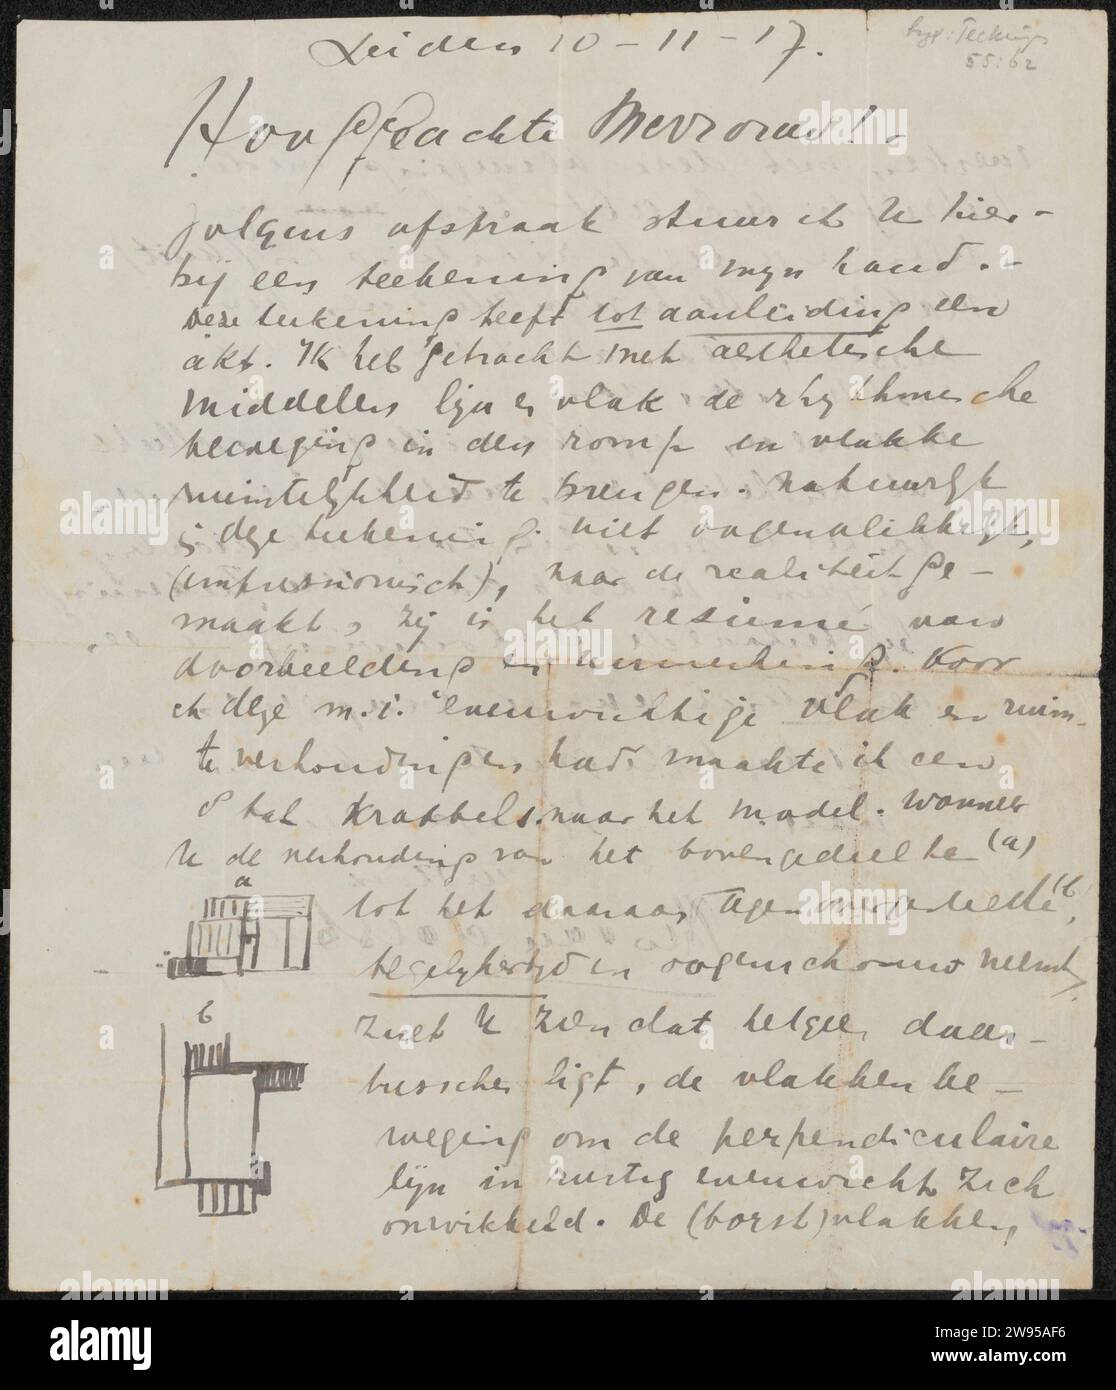 Leiden 10-11-17.
55:62
Hooggeachte Mevrouw!
Volgens afspraak stuur ik U hier-
bij een teekening van mijn hand.-
Deze teekening heeft tot aanleiding een
akt. Ik heb getracht met aesthetische
middelen lijn en vlak de rhythmische
beweging in den romp en vlakke
ruimtelijkheid te brengen. Natuurlijk
is deze teekening niet oogenblikkelijk,
(impressionisch), naar de realiteit ge-
maakt, zij is het resumé van
doorbeelding en
Voor
ik deze m.i. evenwichtige vlak en ruim-
te verhoudingen had, maakte ik een
stal krabbels naar het model. Wanneer
U de verhouding van het bovengedeelte (a)
a
tot het daaraan tegenovergestelde (b
tegelijkertijd in oogenschouw neemt,
b
zult U zien dat hetgeen daar-
tusschen ligt, de vlakken be-
weging om de perpendiculaire
lijn in rustig evenwicht zich
ontwikkeld. De (borst)vlakken,
alamy
Image ID: 2W95AF6
www.alamy.com